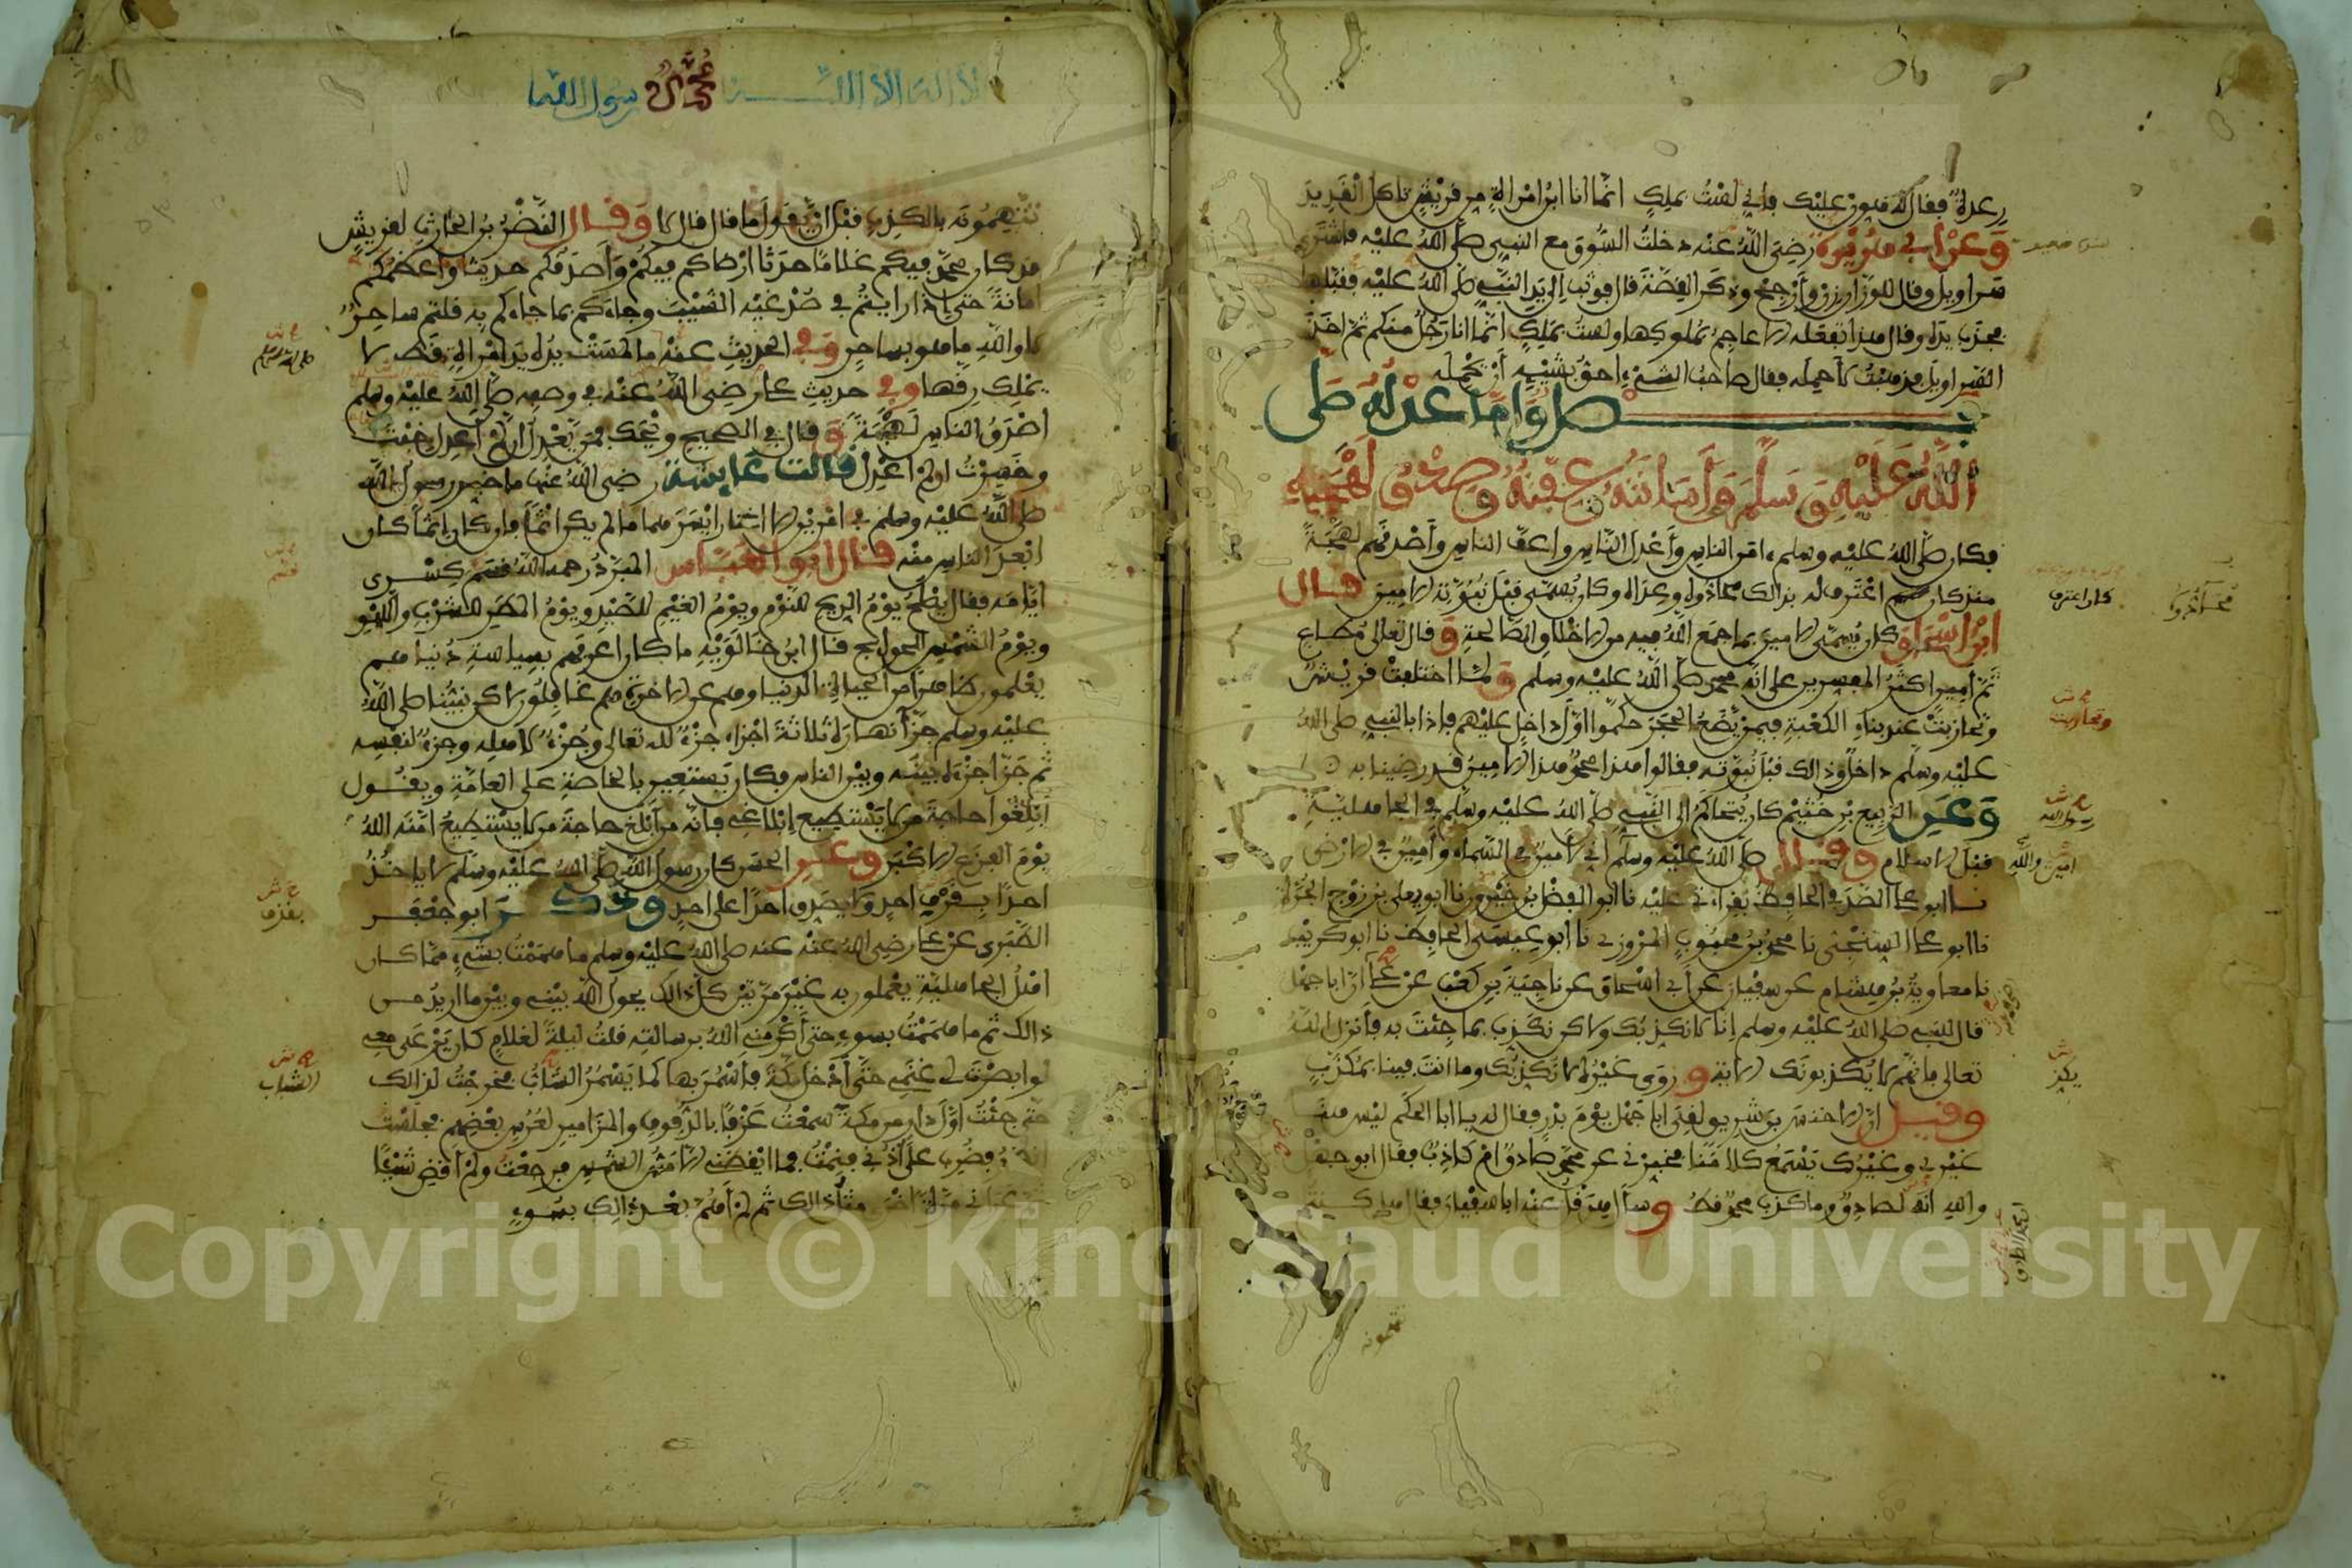 رعدة فقال له هون عليك فإني لست بملك انما انا ابن امرأة من قريش تاكل القديد
وعن أبي هريرة رضي الله عنه دخلت السوق مع النبي صلى الله عليه فاشترى
سراويل وقال للوزان زن وأرجح وذكر القصة قال فوثب إلى يد النبي صلى الله عليه فقبلها
فجذب يده وقال هذا تفعله الاعاجم بملوكها ولست بملك إنما انا رجل منكم ثم اخذ
السراويل فذهبت لأحمله فقال صاحب الشيء احق بشيئه أن يحمله
فصل وأما عدله صلى
الله عليه وسلم وأمانته وعفته وصدق لهجته
فكان صلى الله عليه وسلم ءامن الناس وأعدل الناس واعف الناس وأصدقهم لهجة
منذ كان اعترف له بذالك محادوه وعداه وكان يسمى قبل نبوءته الامين قال
ابن اسحاق كان يسمى الامين بما جمع الله فيه من الاخلاق الصالحة وقال تعالى مطاع
ثم امين اكثر المفسرين على انه محمد صلى الله عليه وسلم ولما اختلفت قريش
وتحازبت عند بناء الكعبة فيمن يضع الحجر حكموا اول داخل عليهم فإذا بالنبي صلى الله
عليه وسلم داخل وذالك قبل نبوته فقالوا هذا محمد هذا الامين قد رضينا به
وعن الربيع بن خثيم كان يتحاكم الى النبي صلى الله عليه وسلم في الجاهلية
قبل الاسلام وقال صلى الله عليه وسلم اني لأمين في السماء وأمين في الارض
نا ابو علي الصدفي الحافظ بقراءتي عليه نا ابو الفضل بن خيرون نا ابو يعلى بن زوج الحرة
نا ابو علي السنجي نا محمد بن محبوب المروزي نا ابو عيسى الحافظ نا ابو كريب
نا معاوية بن هشام عن سفيان عن أبي اسحاق عن ناجية بن كعب عن علي أن ابا جهل
قال للنبي صلى الله عليه وسلم إنا لا نكذبك ولاكن نكذب بما جئت به فأنزل الله
تعالى فإنهم لا يكذبونك الاية وروى غيره لا نكذبك وما انت فينا بمكذب
وقيل إن الاخنس بن شريق لقي ابا جهل يوم بدر فقال له يا ابا الحكم ليس هنا
غيري وغيرك يسمع كلامنا فخبرني عن محمد صادق ام كاذب فقال ابو جهل
والله انه لصادق وما كذب محمد قط وسأل هرقل عنه ابا سفيان فقال هل كنتم
كان اعترف
وتحازبت
رسول الله
امين والله
لا اله الا الله محمد رسول الله
تتهمونه بالكذب قبل ان يقول ما قال قال لا وقال النضر بن الحارث لقريش
قد كان محمد فيكم غلاما حدثا ارضاكم فيكم وأصدقكم حديثا وأعظمكم
امانة حتى إذا رايتم في صدغيه الشيب وجاءكم بما جاءكم به قلتم ساحر
لا والله ما هو بساحر وفي الحديث عنه ما لمست يده يد امرأة قط لا
يملك رقها وفي حديث علي رضي الله عنه في وصفه صلى الله عليه وسلم
اصدق الناس لهجة وقال في الصحيح ويحك فمن يعدل ان لم أعدل خبت
وخسرت ان لم اعدل قالت عايشة رضي الله عنها ما خير رسول الله
صلى الله عليه وسلم في امرين الا اختار ايسرهما ما لم يكن اثما فإن كان إثما كان
ابعد الناس منه قال ابو العباس المبرد رحمه الله قسم كسرى
ايامه فقال يصلح يوم الريح للنوم ويوم الغيم للصيد ويوم المطر للشرب واللهو
ويوم الشمس للحوايج قال ابن خالويه ما كان اعرفهم بسياسة دنياهم
يعلمون ظاهرا من الحياة الدنيا وهم عن الاخرة هم غافلون ولاكن نبينا صلى الله
عليه وسلم جزأ نهاره ثلاثة اجزاء جزء لله تعالى وجزء لأهله وجزء لنفسه
ثم جزأ جزءه بينه وبين الناس فكان يستعين بالخاصة على العامة ويقول
ابلغوا حاجة من لا يستطيع إبلاغي فإنه من أبلغ حاجة من لا يستطيع امنه الله
يوم الفزع الاكبر وعن الحسن كان رسول الله صلى الله عليه وسلم لا ياخذ
احدا بقرف احد ولا يصدق احدا على احد وذكر ابو جعفر
الطبري عن علي رضي الله عنه عنه صلى الله عليه وسلم ما هممت بشيء مما كان
اهل الجاهلية يعملون به غير مرتين كل ذالك يحول الله بيني وبين ما اريد من
ذالك ثم ما هممت بسوء حتى أكرمني الله برسالته قلت ليلة لغلام كان يرعى معي
لو ابصرت لي غنمي حتى أدخل مكة فأسمر بها كما يسمر الشاب فخرجت لذالك
حتى جئت اول دار من مكة سمعت عزفا بالدفوف والمزامير لعرس بعضهم فجلست
فضرب على أذني فنمت فما ايقظني الا مس الشمس فرجعت ولم اقض شيئا
ثم عراني مرة اخرى مثل ذالك ثم لم أهم بعد ذالك بسوء
الشباب
Copyright © King Saud University